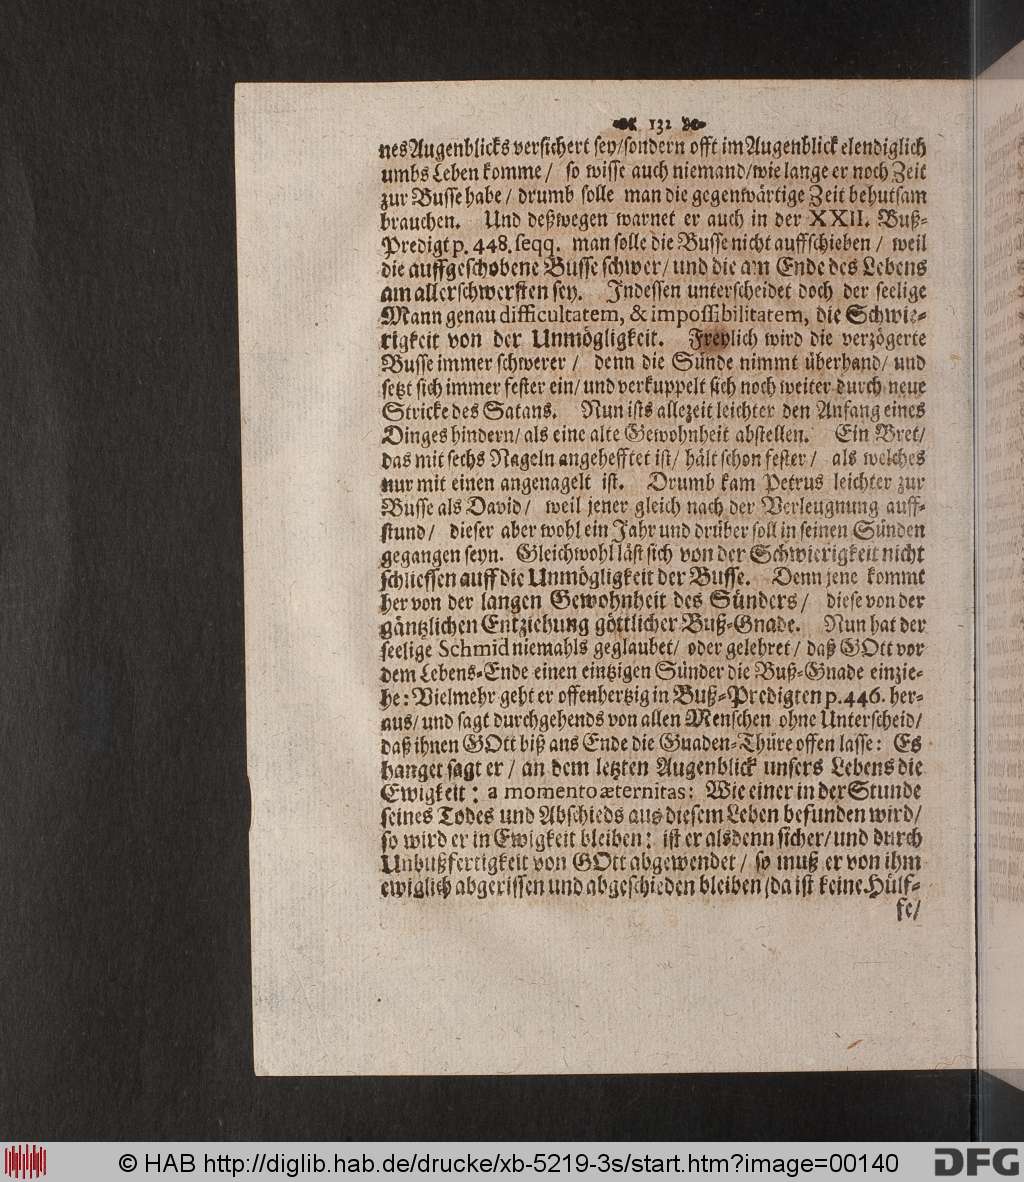 132
nes Augenblicks versichert sey/sondern offt im Augenblick elendiglich
umbs Leben komme / so wisse auch niemand/wie lange er noch Zeit
zur Busse habe / drumb solle man die gegenwärtige Zeit behutsam
brauchen. Und deßwegen warnet er auch in der XXII. Buß-
Predigt p. 448. seqq. man solle die Busse nicht auffschieben / weil
die auffgeschobene Busse schwer/ und die am Ende des Lebens
am allerschwersten sey. Indessen unterscheidet doch der seelige
Mann genau difficultatem, & impossibilitatem, die Schwie-
rigkeit von der Unmögligkeit. Freylich wird die verzögerte
Busse immer schwerer / denn die Sünde nimmt überhand/ und
setzt sich immer fester ein/ und verkuppelt sich noch weiter durch neue
Stricke des Satans. Nun ists allezeit leichter den Anfang eines
Dinges hindern/ als eine alte Gewohnheit abstellen. Ein Bret/
das mit sechs Nageln angehefftet ist/ hält schon fester / als welches
nur mit einen angenagelt ist. Drumb kam Petrus leichter zur
Busse als David/ weil jener gleich nach der Verleugnung auff-
stund/ dieser aber wohl ein Jahr und drüber soll in seinen Sünden
gegangen seyn. Gleichwohl läst sich von der Schwierigkeit nicht
schliessen auff die Unmögligkeit der Busse. Denn jene kommt
her von der langen Gewohnheit des Sünders/ diese von der
gäntzlichen Entziehung göttlicher Buß-Gnade. Nun hat der
seelige Schmid niemahls geglaubet/ oder gelehret/ daß GOtt vor
dem Lebens-Ende einen eintzigen Sünder die Buß-Gnade einzie-
he: Vielmehr geht er offenhertzig in Buß-Predigten p. 446. her-
aus/ und sagt durchgehends von allen Menschen ohne Unterscheid/
daß ihnen GOtt biß ans Ende die Gnaden-Thüre offen lasse: Es
hanget sagt er / an dem letzten Augenblick unsers Lebens die
Ewigkeit: a momento æternitas: Wie einer in der Stunde
seines Todes und Abschieds aus diesem Leben befunden wird/
so wird er in Ewigkeit bleiben: ist er alsdenn sicher/ und durch
Unbußfertigkeit von GOtt abgewendet/ so muß er von ihm
ewiglich abgerissen und abgeschieden bleiben/da ist keine Hülf-
fe/
© HAB http://diglib.hab.de/drucke/xb-5219-3s/start.htm?image=00140
DFG